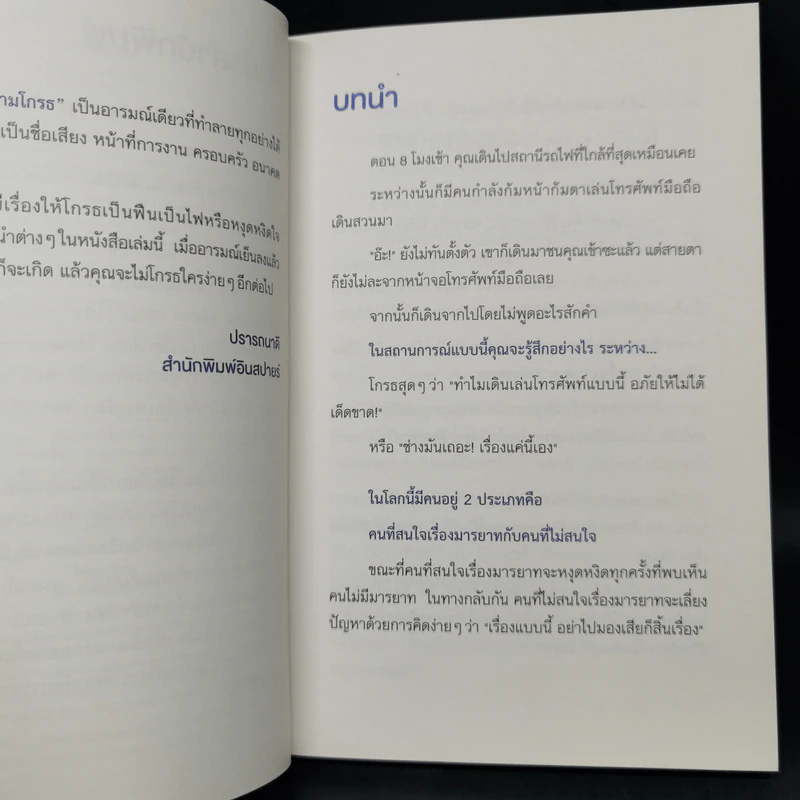 ามโกรธ” เป็นอารมณ์เดียวที่ทำลายทุกอย่างได้
เป็นชื่อเสียง หน้าที่การงาน ครอบครัว อนาคต
มีเรื่องให้โกรธเป็นฟืนเป็นไฟหรือหงุดหงิดใจ
นำต่างๆ ในหนังสือเล่มนี้ เมื่ออารมณ์เย็นลงแล้ว
ก็จะเกิด แล้วคุณจะไม่โกรธใครง่ายๆ อีกต่อไป
ปรารถนาดี
สำนักพิมพ์อินสปายร์
บทนำ
ตอน 8 โมงเช้า คุณเดินไปสถานีรถไฟที่ใกล้ที่สุดเหมือนเคย
ระหว่างนั้นก็มีคนกำลังก้มหน้าก้มตาเล่นโทรศัพท์มือถือ
เดินสวนมา
"อ๊ะ!" ยังไม่ทันตั้งตัว เขาก็เดินมาชนคุณเข้าซะแล้ว แต่สายตา
ก็ยังไม่ละจากหน้าจอโทรศัพท์มือถือเลย
จากนั้นก็เดินจากไปโดยไม่พูดอะไรสักคำ
ในสถานการณ์แบบนี้คุณจะรู้สึกอย่างไร ระหว่าง...
โกรธสุดๆ ว่า "ทำไมเดินเล่นโทรศัพท์แบบนี้ อภัยให้ไม่ได้
เด็ดขาด!"
หรือ "ช่างมันเถอะ! เรื่องแค่นี้เอง"
ในโลกนี้มีคนอยู่ 2 ประเภทคือ
คนที่สนใจเรื่องมารยาทกับคนที่ไม่สนใจ
ขณะที่คนที่สนใจเรื่องมารยาทจะหงุดหงิดทุกครั้งที่พบเห็น
คนไม่มีมารยาท ในทางกลับกัน คนที่ไม่สนใจเรื่องมารยาทจะเลี่ยง
ปัญหาด้วยการคิดง่ายๆ ว่า "เรื่องแบบนี้ อย่าไปมองเสียก็สิ้นเรื่อง"